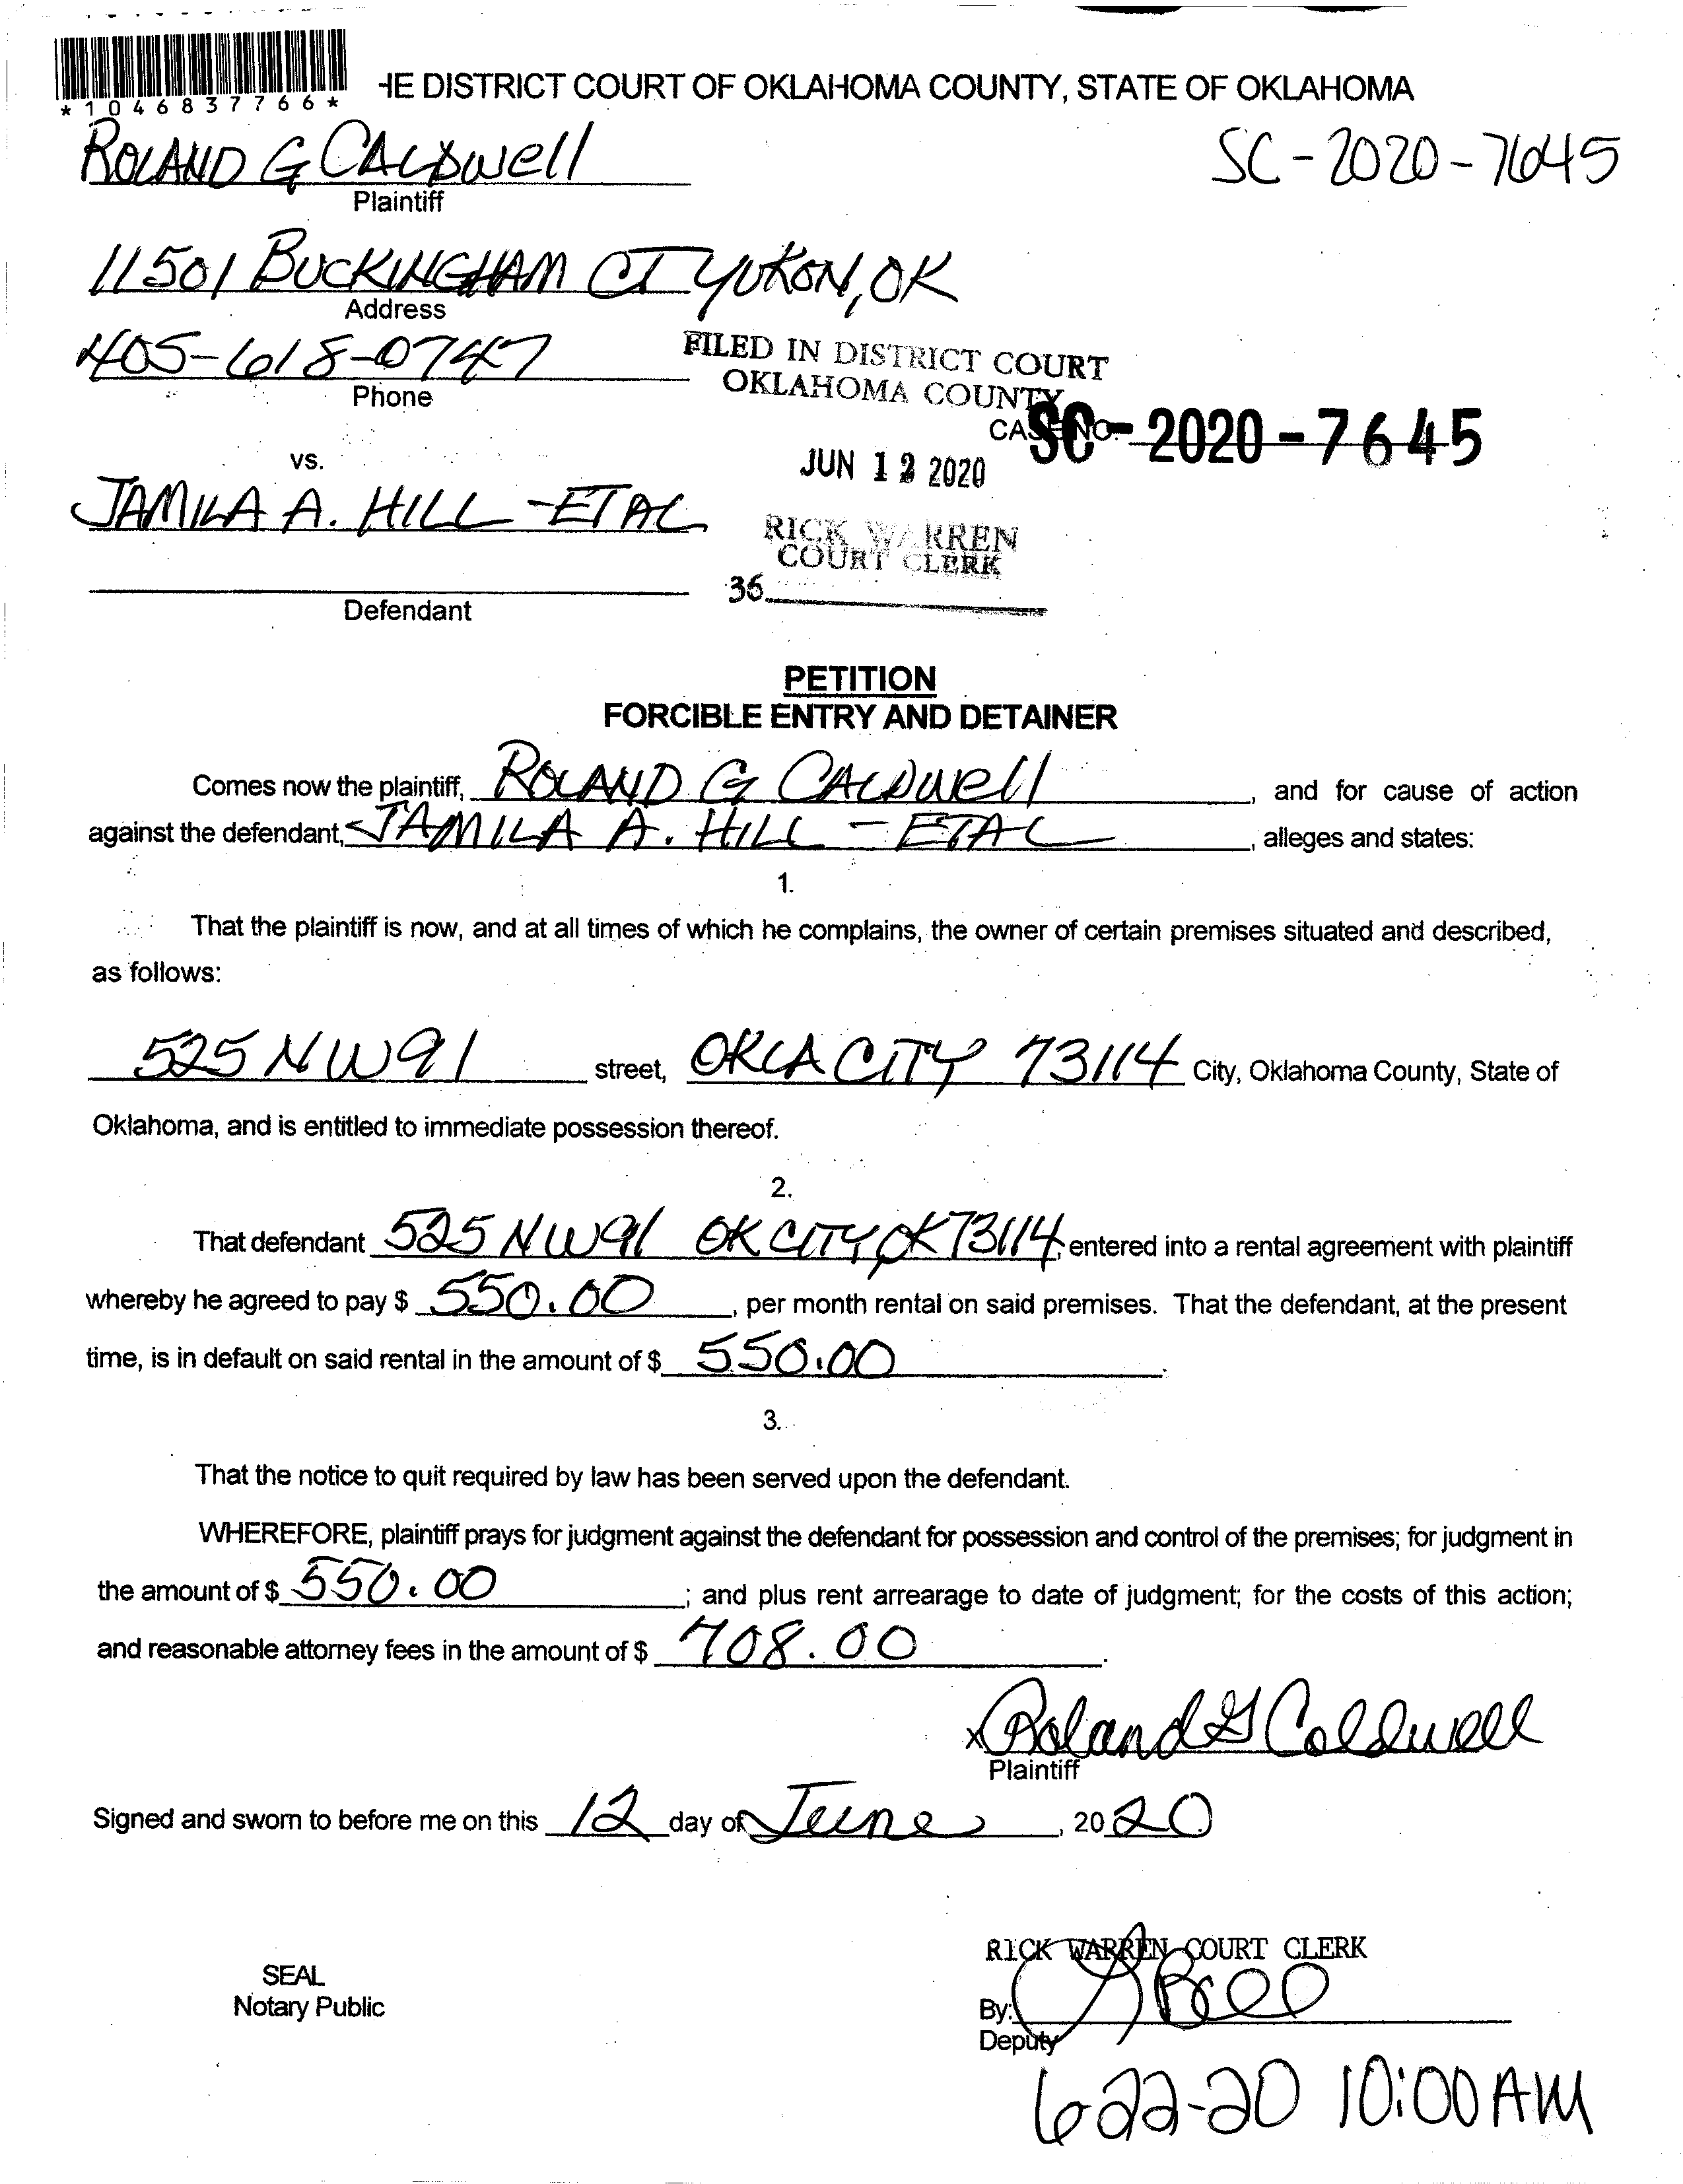 *1046837766*
HE DISTRICT COURT OF OKLAHOMA COUNTY, STATE OF OKLAHOMA
ROLAND G CALDWELL
SC-2020-7645
Plaintiff
11501 BUCKINGHAM CT YUKON, OK
Address
405-618-0747
Phone
FILED IN DISTRICT COURT
OKLAHOMA COUNTY
CASE NO. SC-2020-7645
vs.
JUN 12 2020
JAMILA A. HILL - ETAL
RICK WARREN
COURT CLERK
36
Defendant
PETITION
FORCIBLE ENTRY AND DETAINER
Comes now the plaintiff, ROLAND G CALDWELL, and for cause of action
against the defendant, JAMILA A. HILL - ETAL, alleges and states:
1.
That the plaintiff is now, and at all times of which he complains, the owner of certain premises situated and described,
as follows:
525 NW 91 street, OKLA CITY 73114 City, Oklahoma County, State of
Oklahoma, and is entitled to immediate possession thereof.
2.
That defendant 525 NW 91 OK CITY OK 73114, entered into a rental agreement with plaintiff
whereby he agreed to pay $ 550.00, per month rental on said premises. That the defendant, at the present
time, is in default on said rental in the amount of $ 550.00.
3.
That the notice to quit required by law has been served upon the defendant.
WHEREFORE, plaintiff prays for judgment against the defendant for possession and control of the premises; for judgment in
the amount of $ 550.00; and plus rent arrearage to date of judgment; for the costs of this action;
and reasonable attorney fees in the amount of $ 708.00.
x Roland G Caldwell
Plaintiff
Signed and sworn to before me on this 12 day of June, 2020
RICK WARREN COURT CLERK
SEAL
Notary Public
By:
Deputy
6-22-20 10:00 AM